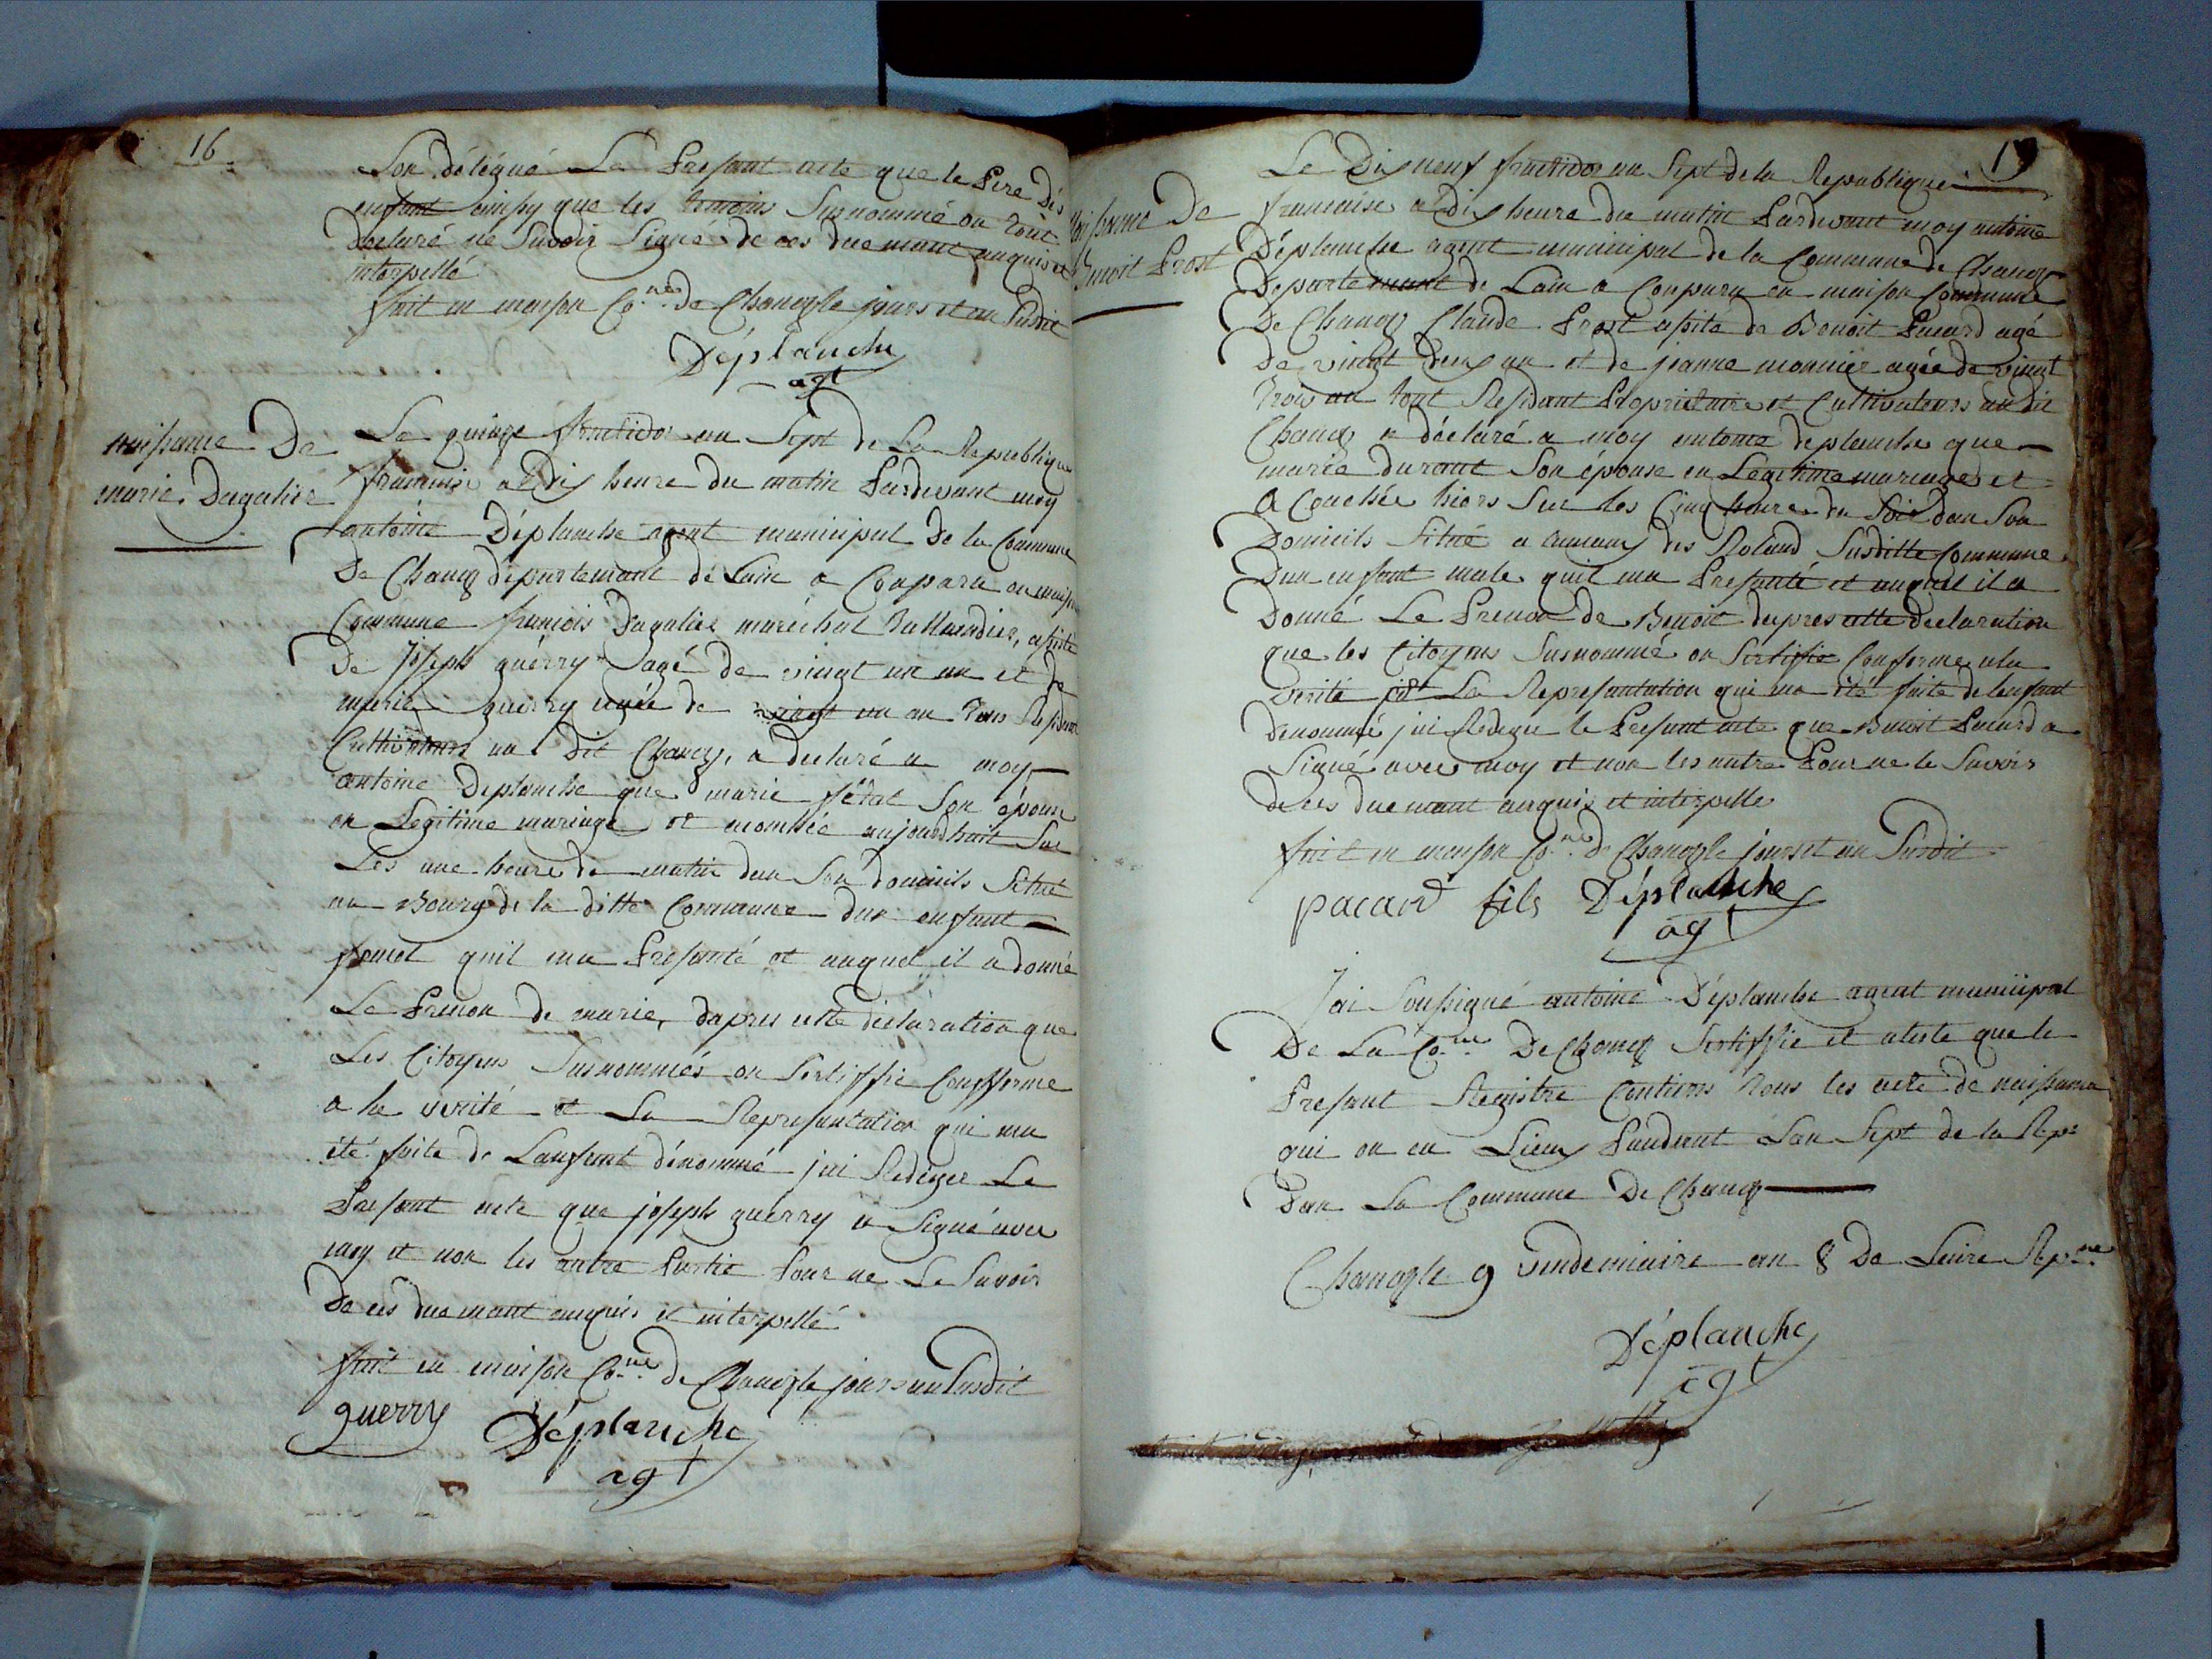 16
Son délégué Le Presant acte que le Pere Des
enfant ainsy que les temoins Susnommé on tout
Declaré ne Savoir Signe de ces due mant anquis et
interpellé
fait en maison Co.ne De Chanoz le jours et an Susdit
Déplanche
agt
naissance De
marie Dagalier
Le quinze fructidor an Sept de La Republique
francaise a Dix heure du matin Pardevant moy
antoine Déplanche agent municipal De la Commune
De Chanoz départemant de Lain a Conparu en maison
Commune francois Dagalier maréchal Tallandier, asisté
De Joseph guérry agé de vingt un an et de
marie guerry agée de vingt un an tous Resident
Cultivateurs au dit Chanoz, a declaré a moy
antoine Deplanche que marie fétal Son épouse
en Legitime mariage et acouchée aujourdhuit Sur
Les une heure du matin dan Son domicils Situé
au Bourg de la ditte Commune dun enfant
femel quil ma Presanté et auquel il a donné
Le Prenon de marie, dapres cette déclaration que
Les Citoyens Susnommés on Sertiffie Confforme
a la verité et La Represantation qui ma
été faite de Lanfant dénommé jai Rediger Le
Presant acte que joseph guerry a Signé avec
moy et non les autre Partie Pour ne Le Savoir
De ces due mant anquis et interpellé
fait en maison Co.ne de Chanoz le jours an Susdit
guerry Déplanche
agt
17
naissance De
Benoit Prost
Le Dix neuf fructidor an Sept de la Republique
francaise a Dix heure du matin Pardevant moy antoine
Déplanche agent municipal de la Commune de Chanoz
Departemant de Lain a Conparu en maison Commune
De Chanoz Claude Prost asisté de Benoit Pacard agé
De vingt deux an et de jeanne monnier agée de vingt
trois an tout Resident Proprietaire et Cultivateurs audit
Chanoz a déclaré a moy antoine deplanche que
marie durant Son épouse en Legitime mariage et
a Couchée hiers Sur les Cinq heure du Soir dan Son
Domicils Situé a hameaux des Roland Susditte Commune
Dun enfant male quil ma Presanté et auquel il a
Donné Le Prenon de Benoit dapres cette declaration
que les Citoyens Susnommé on Sertiffie Conforme ala
Verité et La Represantation qui ma été faite de lenfant
denommé jai Rediger le Presant acte que Benoit Pacard a
Signé avec moy et non les autre Pour ne le Savoir
de ces due mant anquis et interpelle
fait en maison Co.ne de Chanoz le jours et an Susdit
pacard fils Déplanche
agt
Jai Sousigné antoine Déplanche agent municipal
De La Co.ne De Chanoz Sertiffie et ateste que le
Presant Registre Contiens tous les acte de naissance
qui on eu Lieux Pandant Lan Sept de la Rep.
Dan La Commune De Chanoz
Chanoz le 9 vendemiaire an 8 De Leire Rep.ne
Déplanche
agt